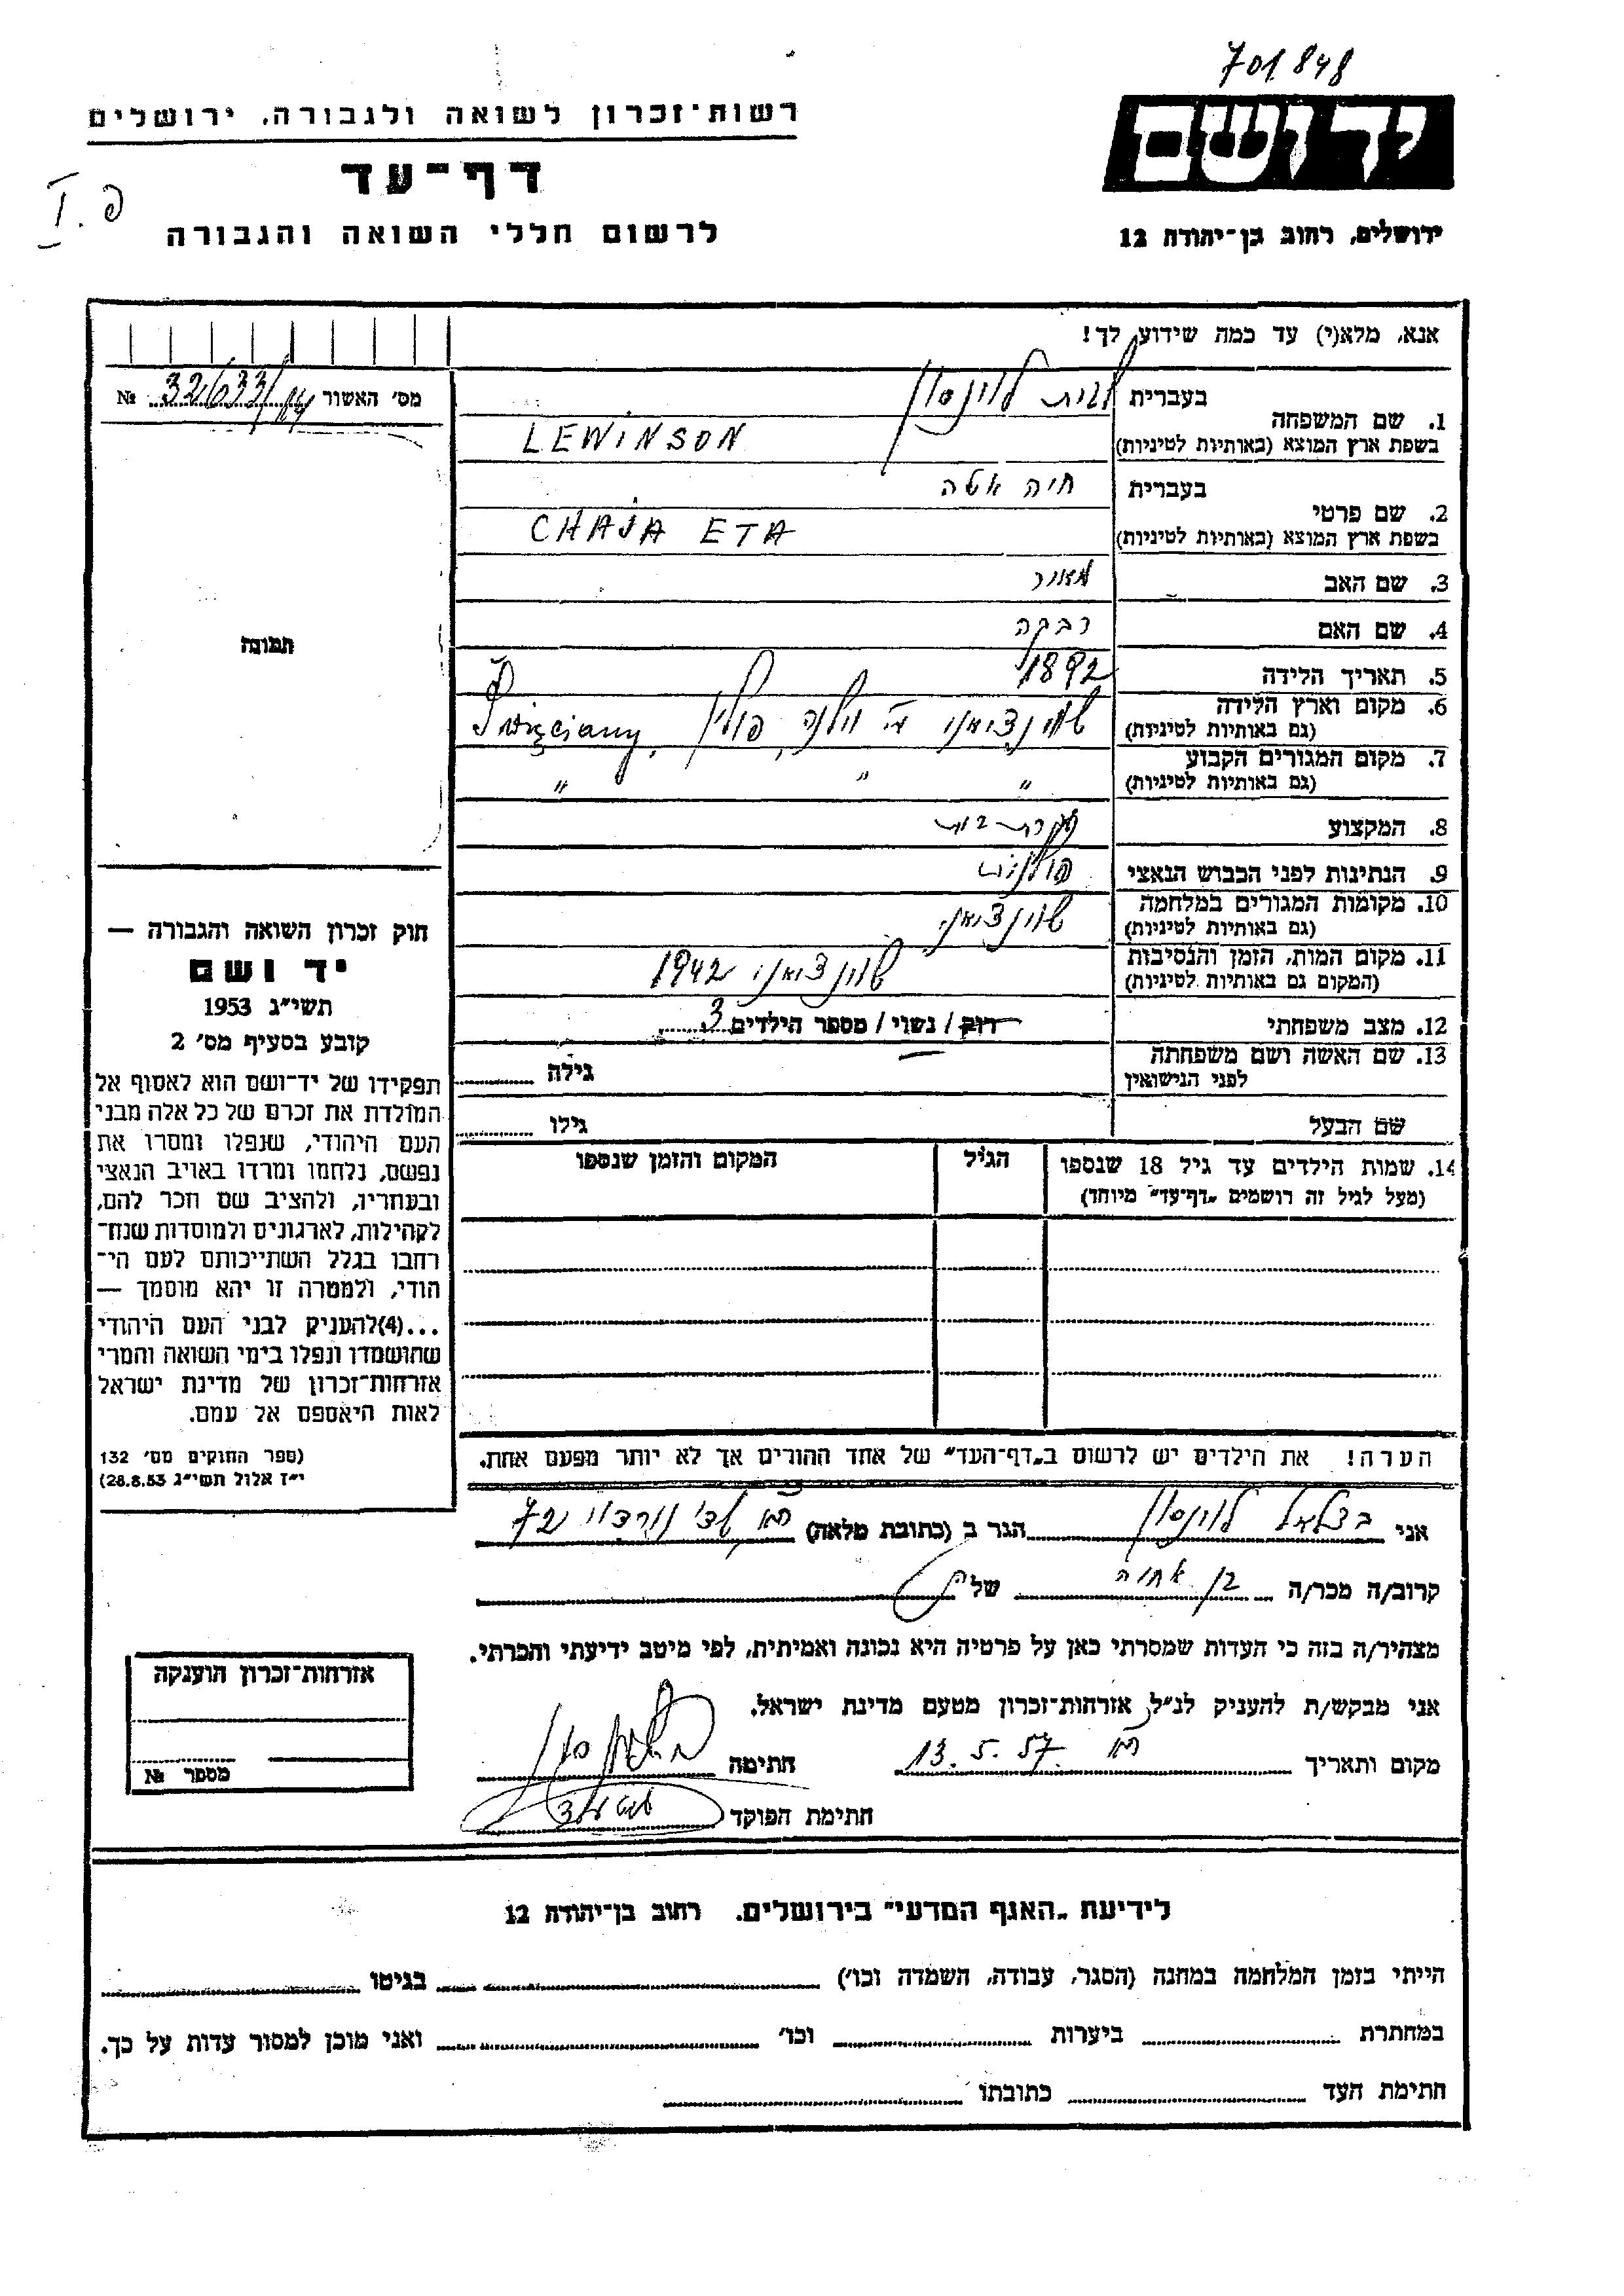 701848
יד ושם
ירושלים, רחוב בן-יהודה 12
רשות-זכרון לשואה ולגבורה, ירושלים
דף-עד
לרשום חללי השואה והגבורה
פ. I
אנא, מלא(י) עד כמה שידוע לך!
1. שם המשפחה
בעברית לוינסון
בשפת ארץ המוצא (באותיות לטיניות) LEWINSON
2. שם פרטי
בעברית חיה אטה
בשפת ארץ המוצא (באותיות לטיניות) CHAJA ETA
3. שם האב מאיר
4. שם האם רבקה
5. תאריך הלידה 1892
6. מקום וארץ הלידה
(גם באותיות לטיניות) שוינציאני פולין, Święciany
7. מקום המגורים הקבוע
(גם באותיות לטיניות) " " "
8. המקצוע עקרת-בית
9. הנתינות לפני הכבוש הנאצי פולנית
10. מקומות המגורים במלחמה
(גם באותיות לטיניות) שוינציאני
11. מקום המות, הזמן והנסיבות
(המקום גם באותיות לטיניות) שוינציאני 1942
12. מצב משפחתי רוק / נשוי / מספר הילדים 3
13. שם האשה ושם משפחתה
לפני הנישואין
גילה
שם הבעל
גילו
14. שמות הילדים עד גיל 18 שנספו
(מעל לגיל זה רושמים "דף-עד" מיוחד)
הגיל
המקום והזמן שנספו
הערה! את הילדים יש לרשום ב"דף-העד" של אחד ההורים אך לא יותר מפעם אחת.
מס' האשור 32/633/14 №
תמונה
חוק זכרון השואה והגבורה —
יד ושם
תשי"ג 1953
קובע בסעיף מס' 2
תפקידו של יד-ושם הוא לאסוף אל
המולדת את זכרם של כל אלה מבני
העם היהודי, שנפלו ומסרו את
נפשם, נלחמו ומרדו באויב הנאצי
ובעוזריו, ולהציב שם וזכר להם,
לקהילות, לארגונים ולמוסדות שנח-
רבו בגלל השתייכותם לעם הי-
הודי, ולמטרה זו יהא מוסמך —
...(4) להעניק לבני העם היהודי
שהושמדו ונפלו בימי השואה והמרי
אזרחות-זכרון של מדינת ישראל
לאות היאספם אל עמם.
(ספר החוקים מס' 132
י"ז אלול תשי"ג 28.8.53)
אני בצלאל לוינסון הגר ב (כתובת מלאה) ת"א שד' נורדוי 72
קרוב/ה מכר/ה בן אחיה של
מצהיר/ה בזה כי העדות שמסרתי כאן על פרטיה היא נכונה ואמיתית, לפי מיטב ידיעתי והכרתי.
אני מבקש/ת להעניק לנ"ל אזרחות-זכרון מטעם מדינת ישראל.
מקום ותאריך ת"א 13.5.57 חתימה
חתימת הפוקד
אזרחות-זכרון הוענקה
מספר №
לידיעת "האגף המדעי" בירושלים. רחוב בן-יהודה 12
הייתי בזמן המלחמה במחנה (הסגר, עבודה, השמדה וכו') בגיטו
במחתרת ביערות וכו' ואני מוכן למסור עדות על כך.
חתימת העד כתובתו